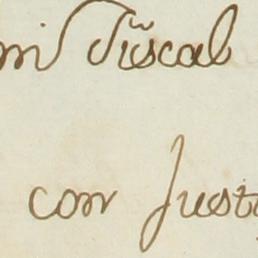 mi Fiscal
con Just